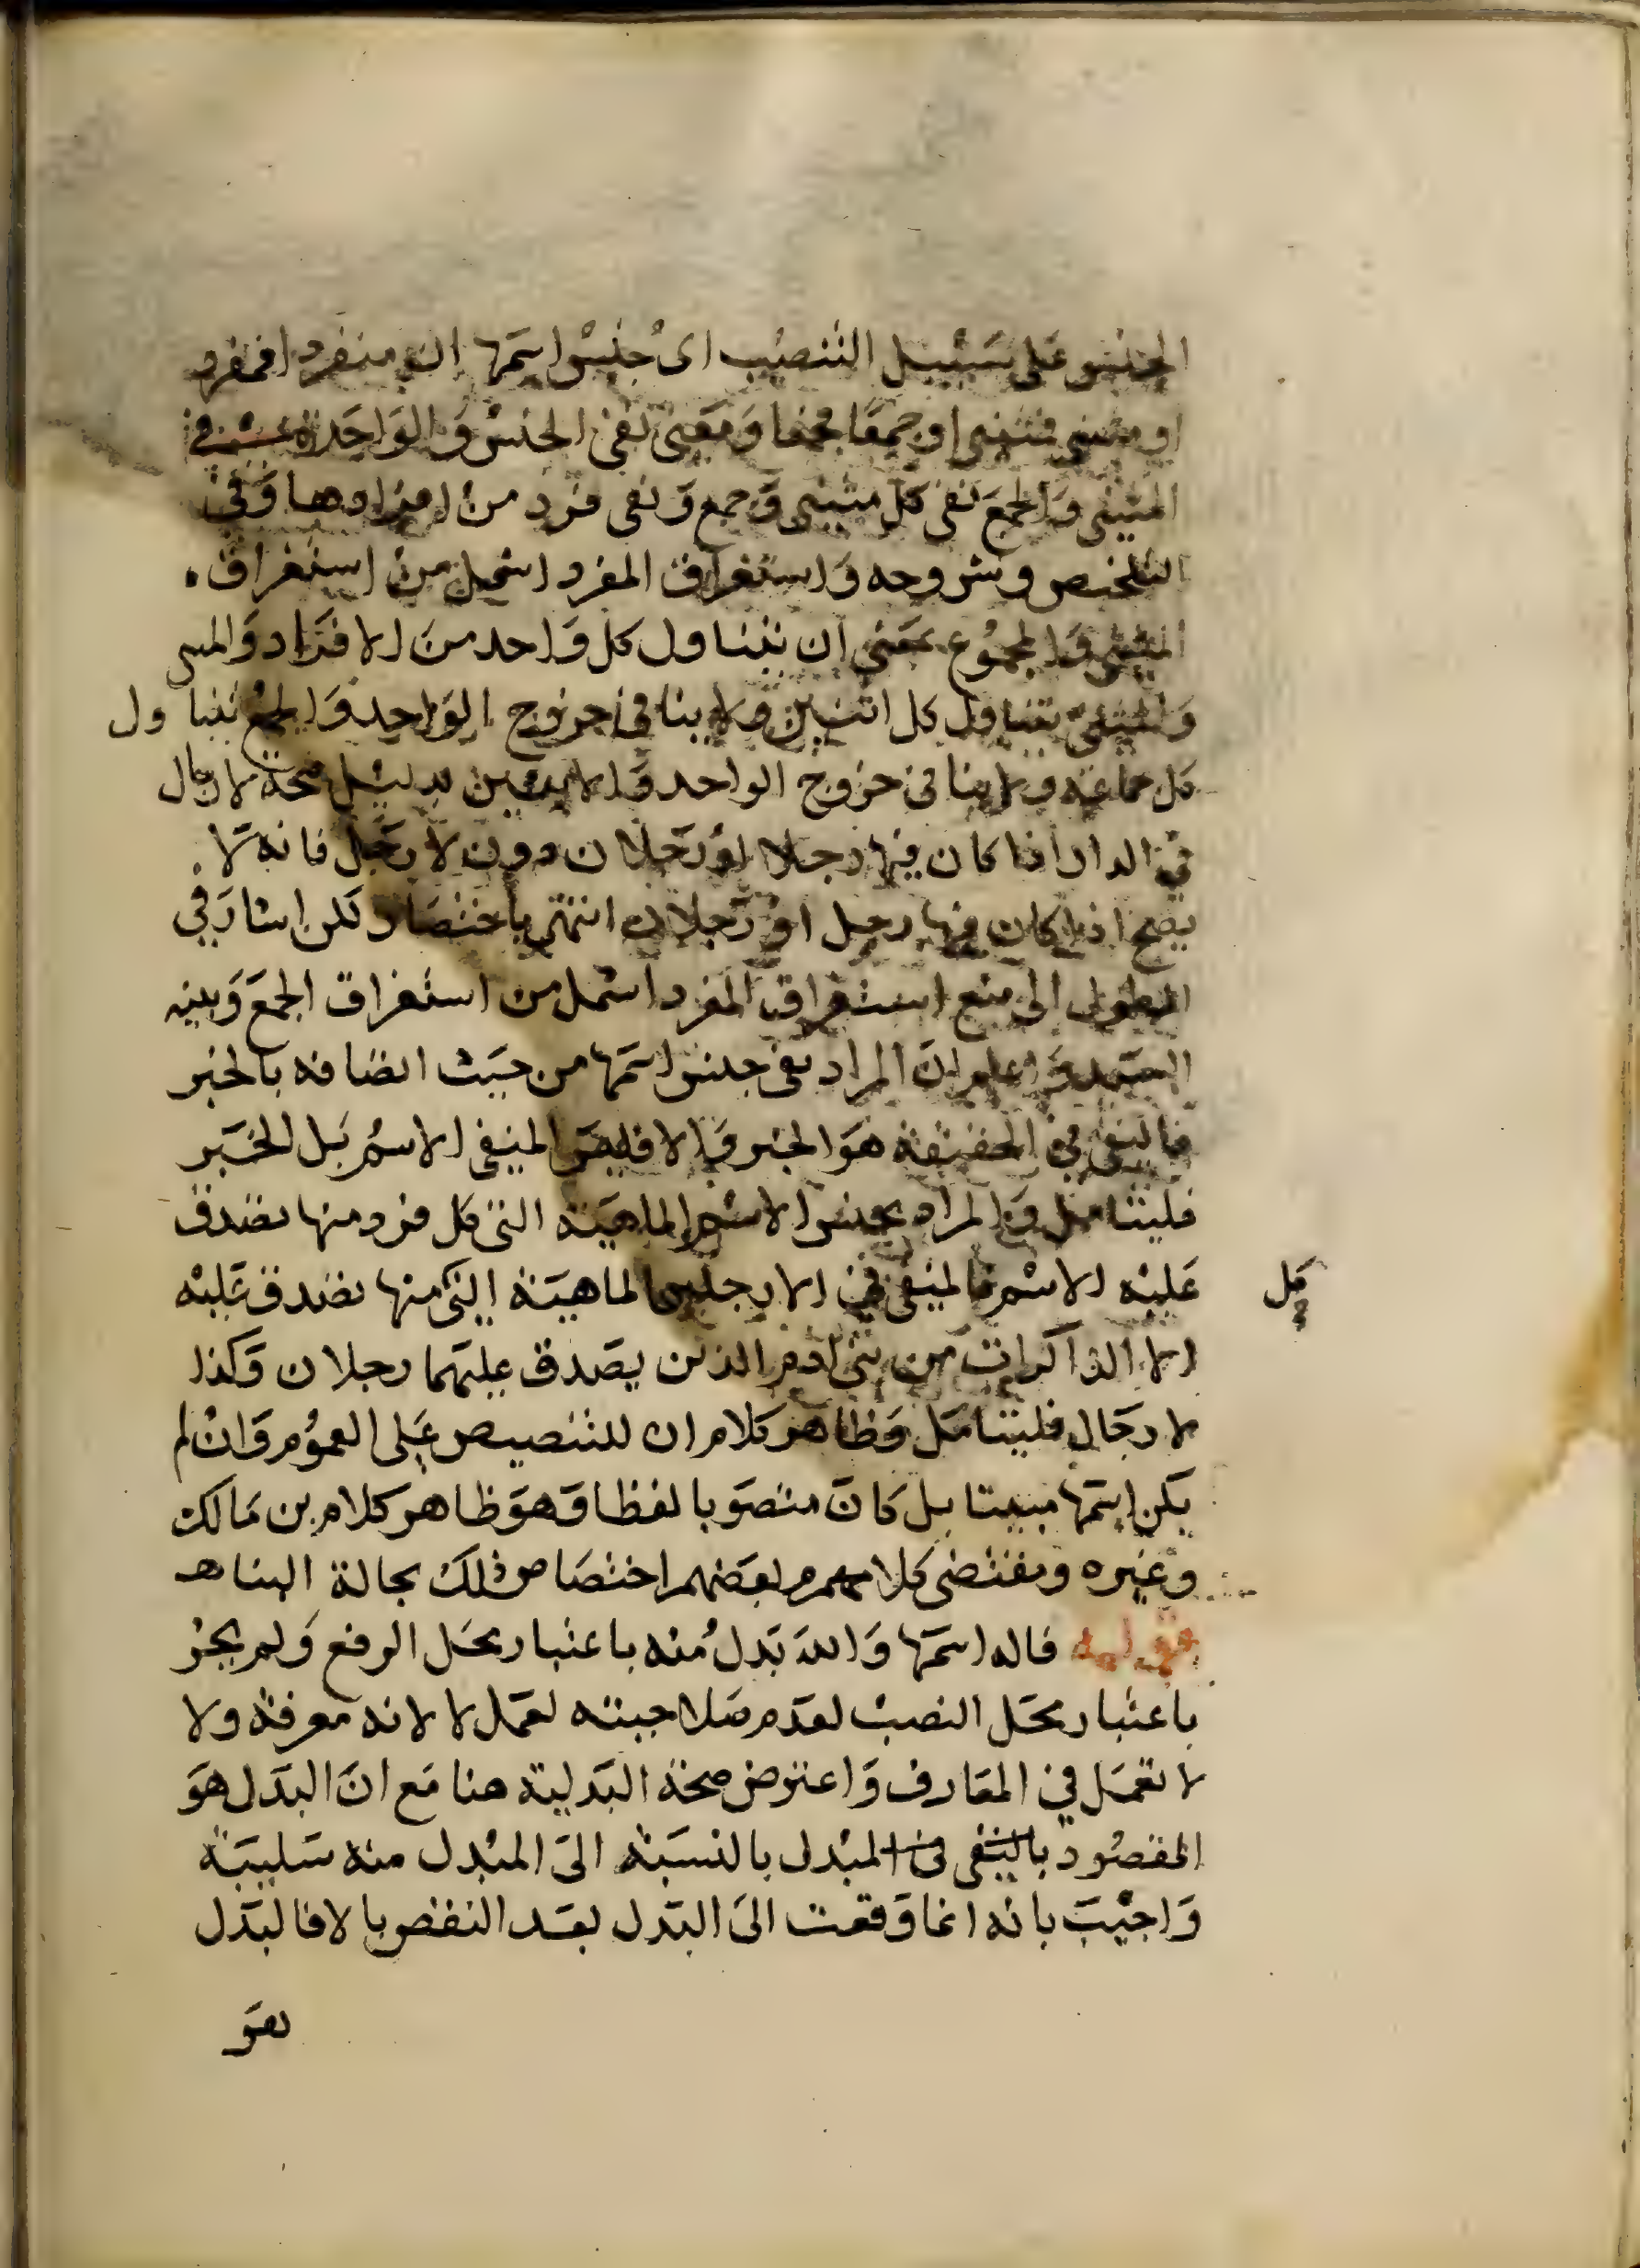 الجنس على سبيل التنصيب اى جنس اسمها ان منفردا فمفرد
او مثنى فمثنى او جمعا فجمعا ومعنى نفى الجنس و الواحدة في
المثنى والجمع نفى كل مثنى وجمع ونفى فرد من افرادها وفى
التلخيص وشروحه واستغراق المفرد اشمل من استغراق
المثنى والمجموع بمعنى ان يتناول كل واحد من الافراد والمىى
والمثنى يتناول كل اثنين ولا ينافى خروج الواحد والجمع يتناول
كل جماعة ولا ينافى خروج الواحد والاثنين بدليل صحة لا رجال
في الدار اذا كان فيها رجلا او رجلان دون لا رجل فانه لا
يصح اذا كان فيها رجل او رجلان انتهى باختصار لكن اشار في
المطول الى منع استغراق المفرد اشمل من استغراق الجمع وبينه
السيد واعلم ان المراد نفى جنس اسمها من حيث اتصافه بالخبر
فالنفى في الحقيقة هو الخبر والا فليس المنفى الاسم بل الخبر
فليتامل والمراد بجنس الاسم الماهية التى كل فرد منها تصدق
عليه الاسم فالمنفى في لا رجلين الماهية التى منها تصدق عليه
كل
الا الذاكرات من بنى ادم الذين يصدق عليهما رجلان وكذا
لا رجال فليتامل وظاهر كلام ان للتنصيص على العموم وان لم
يكن اسمها مبينا بل كان منصوبا لفظا وهو ظاهر كلام بن مالك
وغيره ومقتضى كلامهم بعضهم اختصاص ذلك بحالة البناء هـ
قوله فاله اسمها والله بدل منه باعتبار محل الرفع ولم يجز
باعتبار محل النصب لعدم صلاحيته لعمل لا لانه معرفة ولا
لا تعمل في المعارف واعترض صحة البدلية هنا مع ان البدل هو
المقصود بالنفى فى المبدل بالنسبة الى المبدل منه سلبية
واجيب بانه انما وقعت الى البدل بعد النقض بالا فالبدل
هو